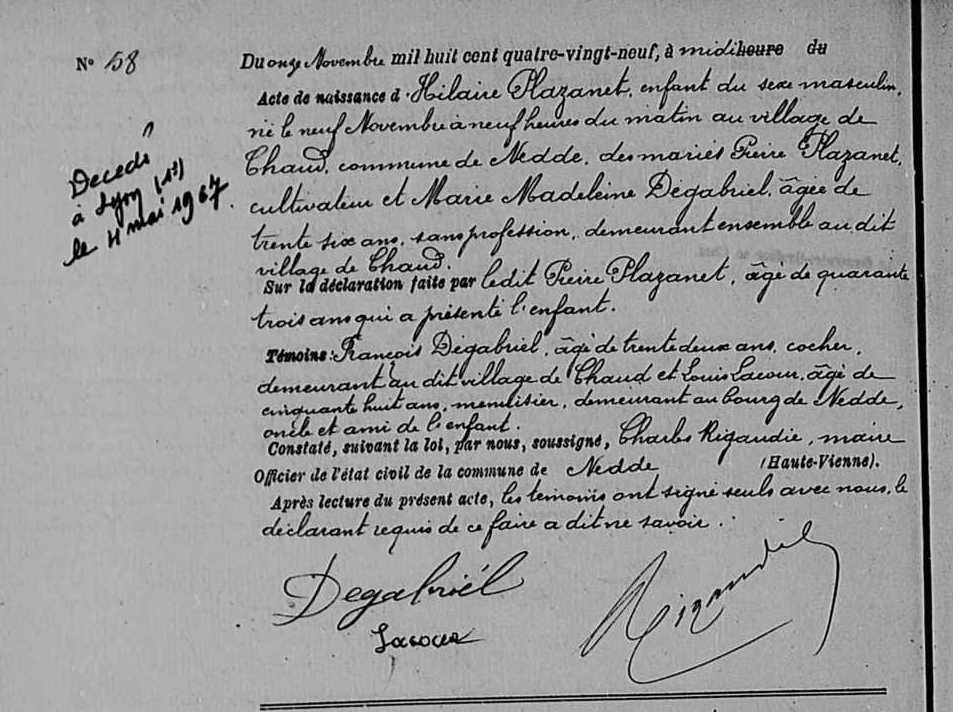 N° 58
Du onze Novembre mil huit cent quatre-vingt-neuf, à midi heure du
Acte de naissance d'Hilaire Plazanet, enfant du sexe masculin,
né le neuf Novembre à neuf heures du matin au village de
Chaud, commune de Nedde, des mariés Pierre Plazanet,
cultivateur et Marie Madeleine Dégabriel, âgée de
trente six ans, sans profession, demeurant ensemble au dit
village de Chaud.
Sur la déclaration faite par le dit Pierre Plazanet, âgé de quarante
trois ans qui a présenté l'enfant.
Témoins: François Dégabriel, âgé de trente deux ans, cocher,
demeurant au dit village de Chaud et Louis Lacour, âgé de
cinquante huit ans, menuisier, demeurant au bourg de Nedde,
oncle et ami de l'enfant.
Constaté, suivant la loi, par nous, soussigné, Charles Rigaudie, maire
Officier de l'état civil de la commune de Nedde (Haute-Vienne).
Après lecture du présent acte, les témoins ont signé seuls avec nous, le
déclarant requis de ce faire a dit ne savoir.
Degabriél
Lacour
Rigaudie
Décédé
à Lyon
le 4 mai 1967.